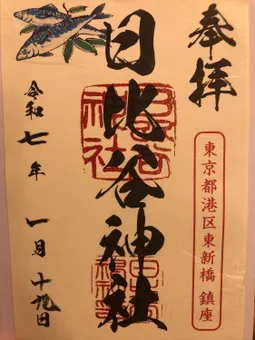 奉拝
東京都港区東新橋 鎮座
日比谷神社
令和七年 一月十九日